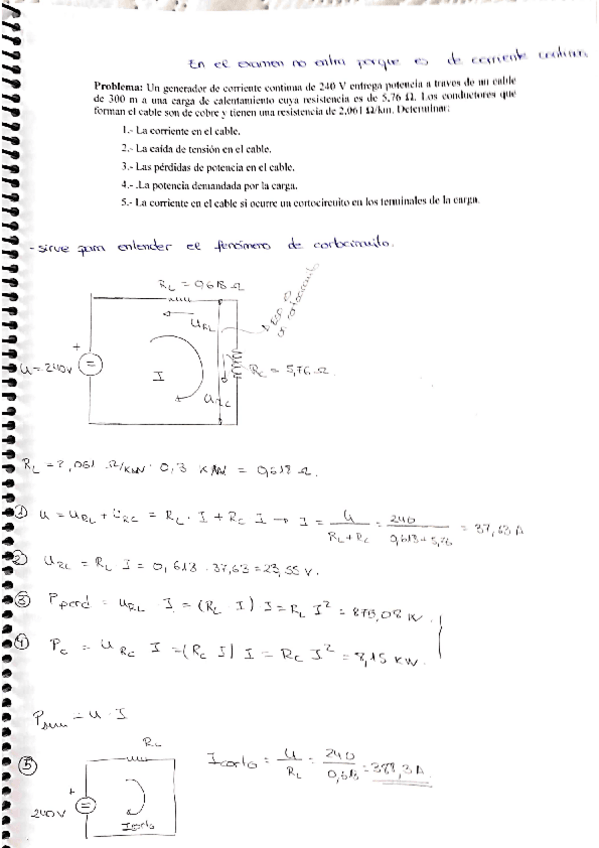 En el examen no entra porque es de corriente continua.
Problema: Un generador de corriente continua de 240 V entrega potencia a traves de un cable
de 300 m a una carga de calentamiento cuya resistencia es de 5,76 Ω. Los conductores que
forman el cable son de cobre y tienen una resistencia de 2,061 Ω/km. Determinar:
1.- La corriente en el cable.
2.- La caída de tensión en el cable.
3.- Las pérdidas de potencia en el cable.
4.- .La potencia demandada por la carga.
5.- La corriente en el cable si ocurre un cortocircuito en los terminales de la carga.
- sirve para entender el fenómero de cortocircuito.
RL = 0,618 Ω
URL
cortocircuito
+
U = 240V
=
I
URC
RC = 5,76 Ω
RL = 2,061 Ω/km · 0,3 km = 0,618 Ω.
① U = URL + URC = RL · I + RC I → I = U / RL + RC = 240 / 0,613 + 5,76 = 37,63 A
② URL = RL · I = 0,613 · 37,63 = 23,55 V.
③ Pperd = URL · I = (RL · I) I = RL I² = 875,08 W.
④ PC = URC I = (RC I) I = RC I² = 8,15 KW.
Psum = U · I
⑤
RL
Icorto = U / RL = 240 / 0,618 = 388,3 A.
+
240V
=
Icorto